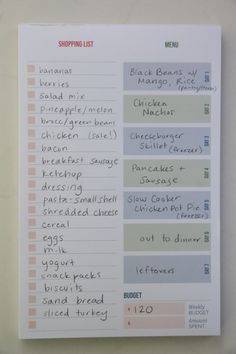 SHOPPING LIST
bananas
berries
salad mix
pineapple/melon
brocc/green beans
chicken (sale!)
bacon
breakfast sausage
ketchup
dressing
pasta-small shell
shredded cheese
cereal
eggs
milk
yogurt
snack packs
biscuits
sand bread
sliced turkey
MENU
Black Beans w/
Mango, Rice
(pantry/freezer)
DAY 1
Chicken
Nachos
DAY 2
Cheeseburger
Skillet
(freezer)
DAY 3
Pancakes +
Sausage
DAY 4
Slow Cooker
Chicken Pot Pie
(freezer)
DAY 5
out to dinner
DAY 6
leftovers
DAY 7
BUDGET
$ 120
Weekly
BUDGET
$
Amount
SPENT